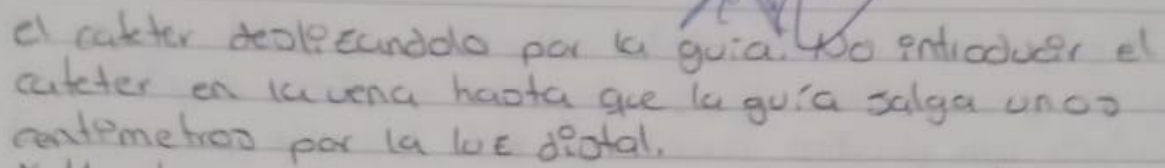 el cateter deslizandolo por la guia. No introducir el
cateter en la vena hasta que la guía salga unos
centimetros por la luz distal.